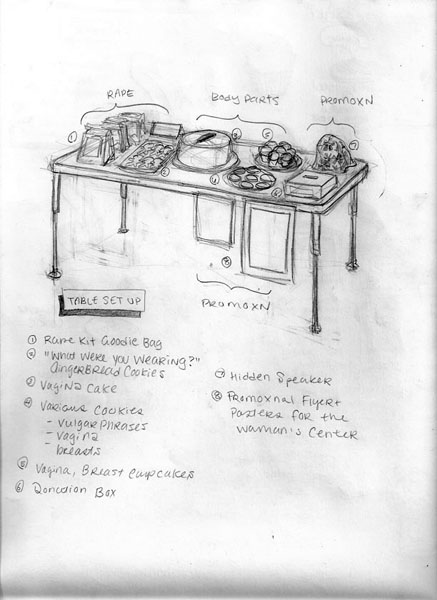 RAPE
Body Parts
PROMOXN
① ③ ⑤ ⑦
② ④ ⑥
⑧
PROMOXN
TABLE SET UP
① Rape Kit Goodie Bag
② "What Were You Wearing?"
GingerBread Cookies
③ Vagina Cake
④ Various Cookies
- Vulgar Phrases
- Vagina
- breasts
⑤ Vagina, Breast Cupcakes
⑥ Donation Box
⑦ Hidden Speaker
⑧ Promoxnal Flyer +
Posters for the
Woman's Center